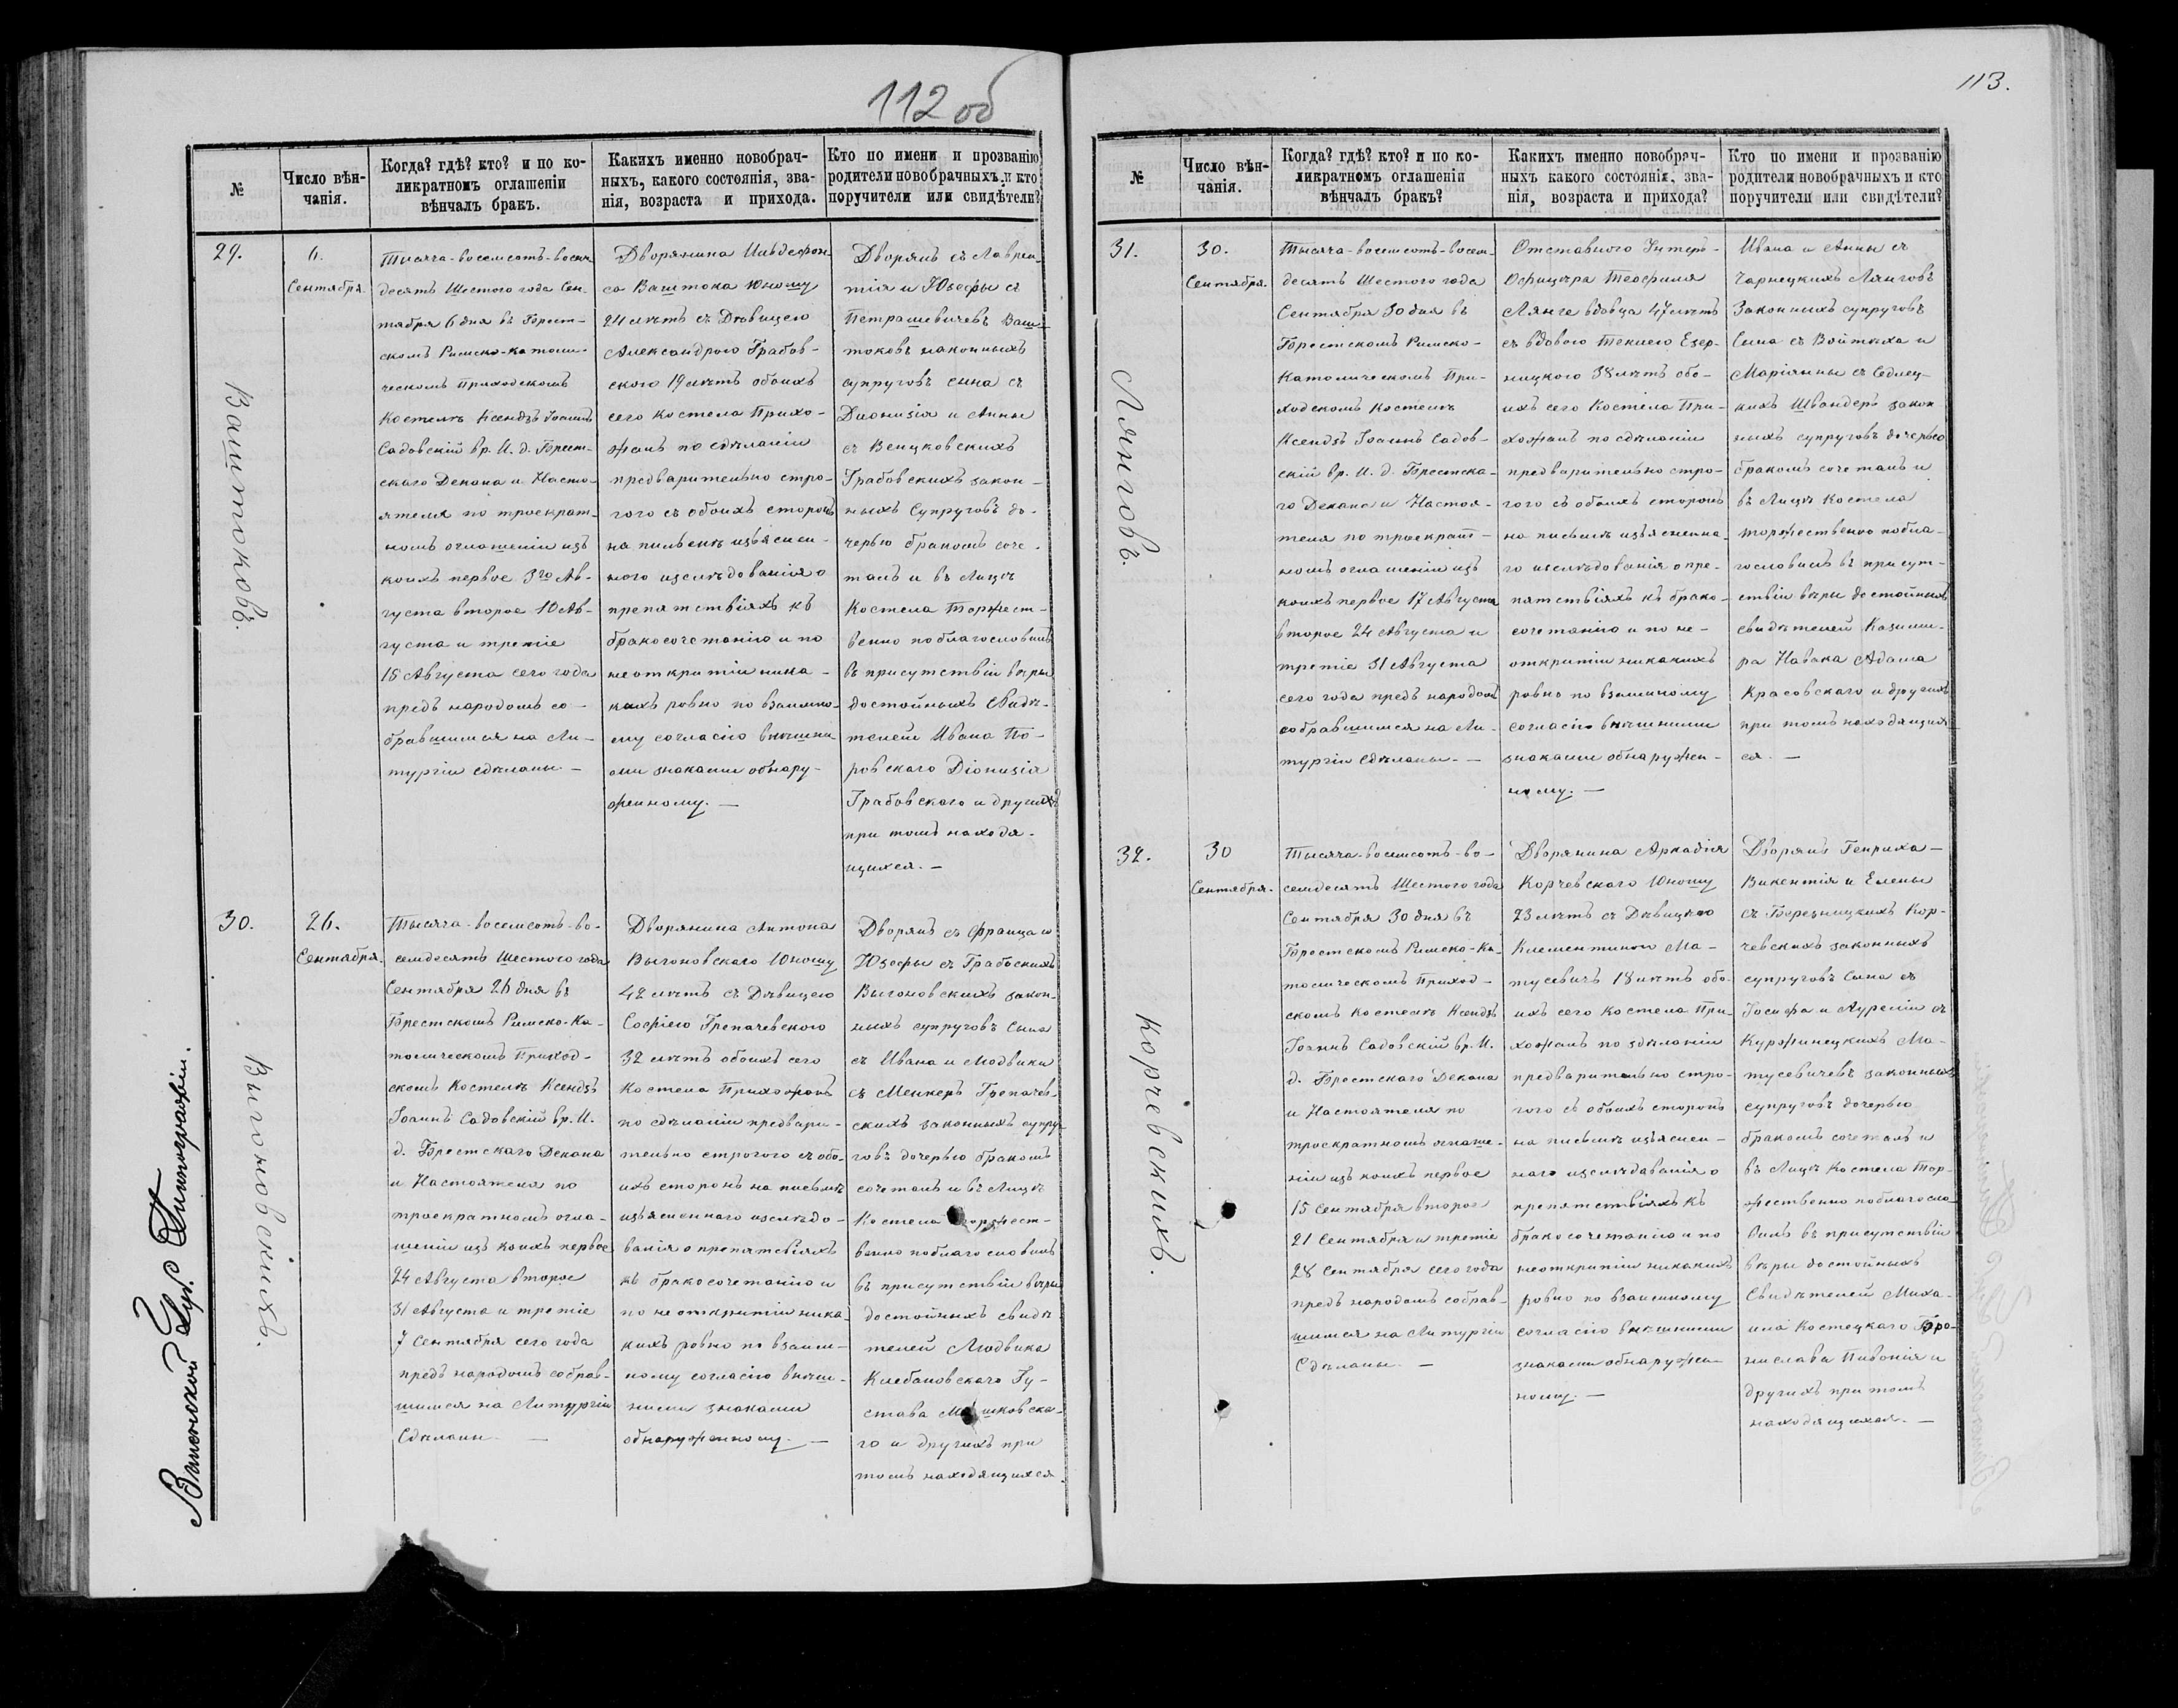 112 об
№
Число вѣн-
чанія.
Когда? гдѣ? кто? и по ко-
ликратномъ оглашеніи
вѣнчалъ бракъ.
Какихъ именно новобрач-
ныхъ, какого состоянія, зва-
нія, возраста и прихода.
Кто по имени и прозванію
родители новобрачныхъ и кто
поручители или свидѣтели?
29.
6.
Сентября.
Тысяча-восемсотъ-восем
десятъ Шестого года Сен
тября 6 дня въ Брест-
скомъ Римско-католи-
ческомъ приходскомъ
Костелѣ Ксендзъ Іоаннъ
Садовскій вр. И. д. Брест-
скаго Декана и Насто-
ятеля по троекрат-
номъ оглашеніи изъ
коихъ первое 3го Ав-
густа второе 10 Ав-
густа и третіе
15 Августа сего года
предъ народомъ со-
бравшимся на Ли-
тургіи сдѣланы. —
Дворянина Ильдефон
са Ваштока Юношу
24 лѣтъ съ Дѣвицею
Александрою Грабов-
скою 19 лѣтъ обоихъ
сего костела Прихо-
жанъ по сдѣланіи
предварительно стро-
гого съ обоихъ сторонъ
на письмѣ изъяснен-
ного изслѣдованія о
препятствіяхъ къ
бракосочетанію и по
неоткрытіи ника-
кихъ ровно по взаимно-
му согласію внѣшни
ми знаками обнару-
женному. —
Дворянъ съ Лаврен
тія и Юзефы съ
Петрашевичевъ Ваш-
токовъ законныхъ
супруговъ сына съ
Діонизія и Анны
съ Венцковскихъ
Грабовскихъ закон-
ныхъ Супруговъ до-
черью бракомъ соче-
талъ и въ Лицѣ
Костела Торжест-
венно поблагословилъ
въ присутствіи вѣры
достойныхъ Свидѣ-
телей Ивана По-
ровскаго Діонизія
Грабовскаго и другихъ
при томъ находя-
щихся. —
Ваштоковъ.
30.
26.
Сентября.
Тысяча-восемсотъ-во-
семдесятъ Шестого года
Сентября 26 дня въ
Брестскомъ Римско-Ка-
толическомъ Приход-
скомъ Костелѣ Ксендзъ
Іоаннъ Садовскій вр. И.
д. Брестскаго Декана
и Настоятеля по
троекратномъ огла-
шеніи изъ коихъ первое
24 Августа второе
31 Августа и третіе
7 Сентября сего года
предъ народомъ собрав-
шимся на Литургіи
Сдѣланы. —
Дворянина Антона
Выгоновскаго Юношу
42 лѣтъ съ Дѣвицею
Софіею Грепачевскою
32 лѣтъ обоихъ сего
Костела Прихожанъ
по сдѣланіи предвари-
тельно строгого съ обо-
ихъ сторонъ на письмѣ
изъясненнаго изслѣдо-
ванія о препятствіяхъ
къ бракосочетанію и
по неоткрытіи ника-
кихъ ровно по взаим-
ному согласію внѣш-
ними знаками
обнаруженному. —
Дворянъ съ Франца и
Юзефы съ Грабовскихъ
Выгоновскихъ закон-
ныхъ супруговъ Сына
съ Ивана и Людвики
съ Менкеръ Грепачев-
скихъ законныхъ супру-
говъ дочерью бракомъ
сочеталъ и въ Лицѣ
Костела Торжест-
венно поблагословилъ
въ присутствіи вѣры
достойныхъ свидѣ
телей Людвика
Клебановскаго Гу-
става Машковска-
го и другихъ при
томъ находящихся.
Выгоновскихъ.
Виленской Губ. Типографіи.
113.
№
Число вѣн-
чанія.
Когда? гдѣ? кто? и по ко-
ликратномъ оглашеніи
вѣнчалъ бракъ?
Какихъ именно новобрач-
ныхъ какого состоянія, зва-
нія, возраста и прихода?
Кто по имени и прозванію
родители новобрачныхъ и кто
поручители или свидѣтели?
31.
30.
Сентября.
Тысяча-восемсотъ-восем-
десятъ Шестого года
Сентября 30 дня въ
Брестскомъ Римско-
Католическомъ При-
ходскомъ Костелѣ
Ксендзъ Іоаннъ Садов-
скій вр. И. д. Брестска-
го Декана и Настоя-
теля по троекрат-
номъ оглашеніи изъ
коихъ первое 17 Августа
второе 24 Августа и
третіе 31 Августа
сего года предъ народомъ
собравшимся на Ли-
тургіи сдѣланы. —
Отставного Унтеръ-
Офицера Теофиля
Лянге вдовца 47 лѣтъ
съ вдовою Теклею Езер-
ницкою 38 лѣтъ обо-
ихъ сего Костела При-
хожанъ по сдѣланіи
предварительно стро-
гого съ обоихъ сторонъ
на письмѣ изъясненна-
го изслѣдованія о пре-
пятствіяхъ къ брако-
сочетанію и по не-
открытіи никакихъ
ровно по взаимному
согласію внѣшними
знаками обнаружен-
ному. —
Ивана и Анны съ
Чарнецкихъ Лянговъ
Законныхъ супруговъ
Сына съ Войтѣха и
Маріянны съ Седлец-
кихъ Швандеръ закон
ныхъ супруговъ дочерью
бракомъ сочеталъ и
въ Лицѣ Костела
торжественно побла-
гословилъ въ присут-
ствіи вѣры достойныхъ
свидѣтелей Казими-
ра Навака Адама
Красовскаго и другихъ
при томъ находящих
ся. —
Лянговъ.
32.
30
Сентября.
Тысяча-восемсотъ-во-
семдесятъ Шестого года
Сентября 30 дня въ
Брестскомъ Римско-Ка-
толическомъ Приход-
скомъ Костелѣ Ксендзъ
Іоаннъ Садовскій вр. И.
д. Брестскаго Декана
и Настоятеля по
троекратномъ оглаше-
ніи изъ коихъ первое
15 Сентября второе
21 Сентября и третіе
28 Сентября сего года
предъ народомъ собрав-
шимся на Литургіи
Сдѣланы. —
Дворянина Аркадія
Корчевскаго Юношу
23 лѣтъ съ Дѣвицею
Клементиною Ма-
тусевичъ 18 лѣтъ обо-
ихъ сего Костела При-
хожанъ по здѣланіи
предварительно стро-
гого съ обоихъ сторонъ
на письмѣ изъяснен-
наго изслѣдаванія о
препятствіяхъ къ
бракосочетанію и по
неоткрытіи никакихъ
ровно по взаимному
согласію внѣшними
знаками обнаружен
ному. —
Дворянъ Генриха —
Викентія и Елены
съ Березницкихъ Кор-
чевскихъ законныхъ
супруговъ Сына съ
Іосифа и Аурелии съ
Курженецкихъ Ма-
тусевичевъ законныхъ
супруговъ дочерью
бракомъ сочеталъ и
въ Лицѣ Костела Тор-
жественно поблагосло-
вилъ въ присутствіи
вѣры достойныхъ
Свидѣтелей Миха-
ила Костецкаго Бро-
нислава Пивонія и
другихъ при томъ
находящихся. —
Корчевскихъ.